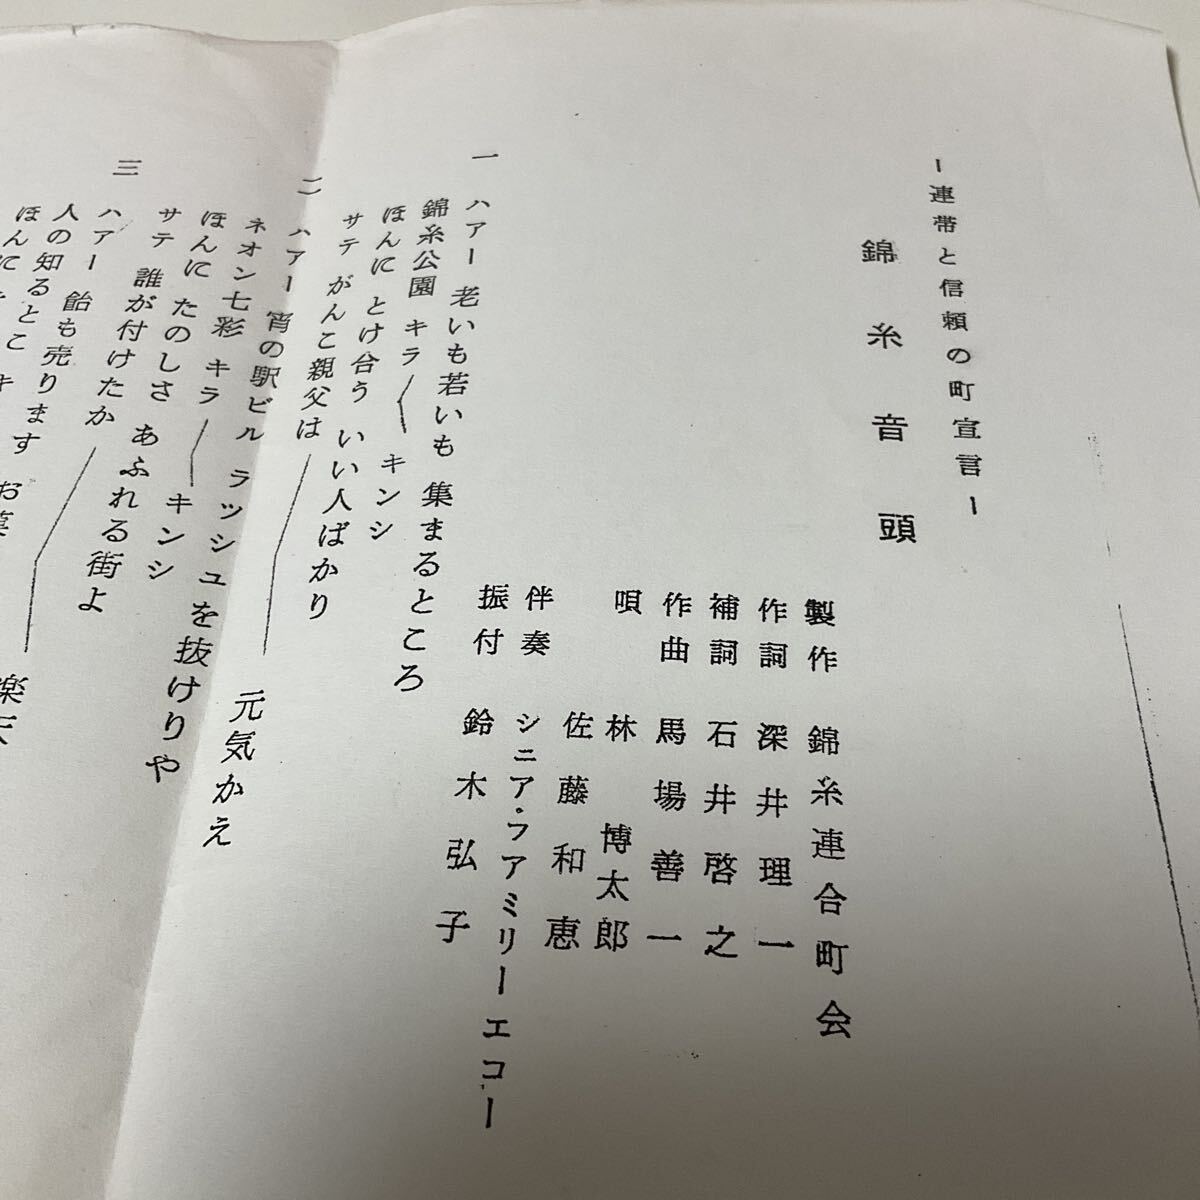 ー連帯と信頼の町宣言ー
錦糸音頭
製作 錦糸連合町会
作詞 深井理一
補詞 石井啓之
作曲 馬場善一
唄 林 博太郎
佐藤和恵
伴奏 シニア・フアミリーエコー
振付 鈴木弘子
一 ハアー 老いも若いも 集まるところ
錦糸公園 キラ〱 キンシ
ほんに とけ合う いい人ばかり
サテ がんこ親父は〱 元気かえ
二 ハアー 宵の駅ビル ラツシユを抜けりや
ネオン七彩 キラ〱 キンシ
ほんに たのしさ あふれる街よ
サテ 誰が付けたか〱 楽天
三 ハアー 飴も売ります お菓
人の知るとこ キ
ほんに